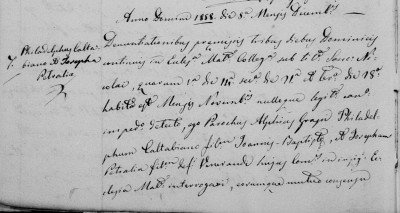 Anno Domini 1858. die 5a Mensis Decembris
7. Philadelphus Calta-
biano et Josepha
Petralia
Denunciationibus præmissis tribus diebus Dominicis
continuis in Eccles. Mat. Colleg. sub tit. Sanc. Ni-
colai, quarum 1a die 14, sec. die 21, et ter. die 28
habita est Mensis Novembris nulloque legit. can.
imped. detecto, ego Parochus Alphius Grasso Philadel-
phum Caltabiano filium Joannis-Baptistæ, et Josepham
Petralia filiam def. Venerandi hujus in
clesia Mat. interrogavi, eorumque mutuo consensu